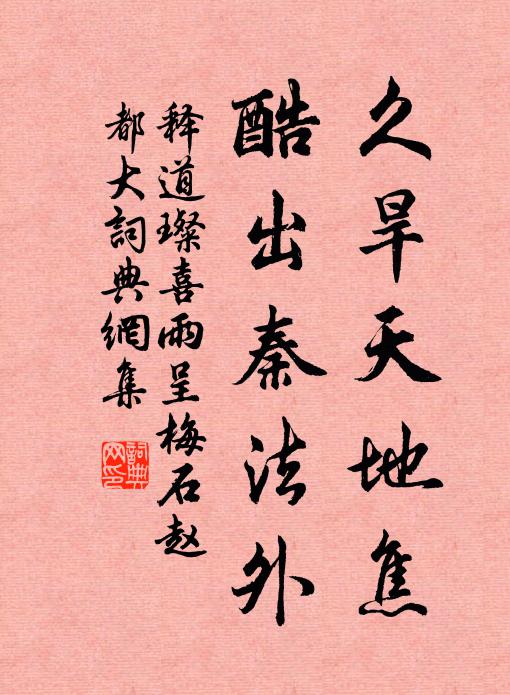 久旱天地焦
酷出秦法外
释道璨喜雨呈梅石赵
都大詞典網集
詞典
网印